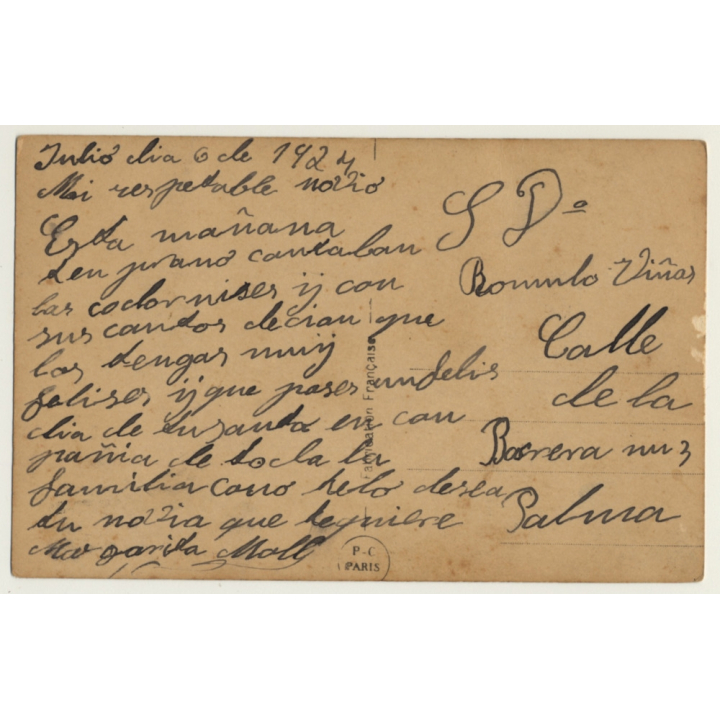 Julio dia 6 de 1924
Mi respetable novio
Esta mañana
ten prano cantaban
las codornises ij con
sus cantos decian que
los tengas muij
felises ij que pases un felis
dia de tu santa en con
pañia de toda la
familia cono telo desea
tu novia que tequiere
Margarita Moll
S Dº
Romulo Viñas
Calle
de la
Barrera nu 3
Palma
Fabrication Française
P-C
PARIS